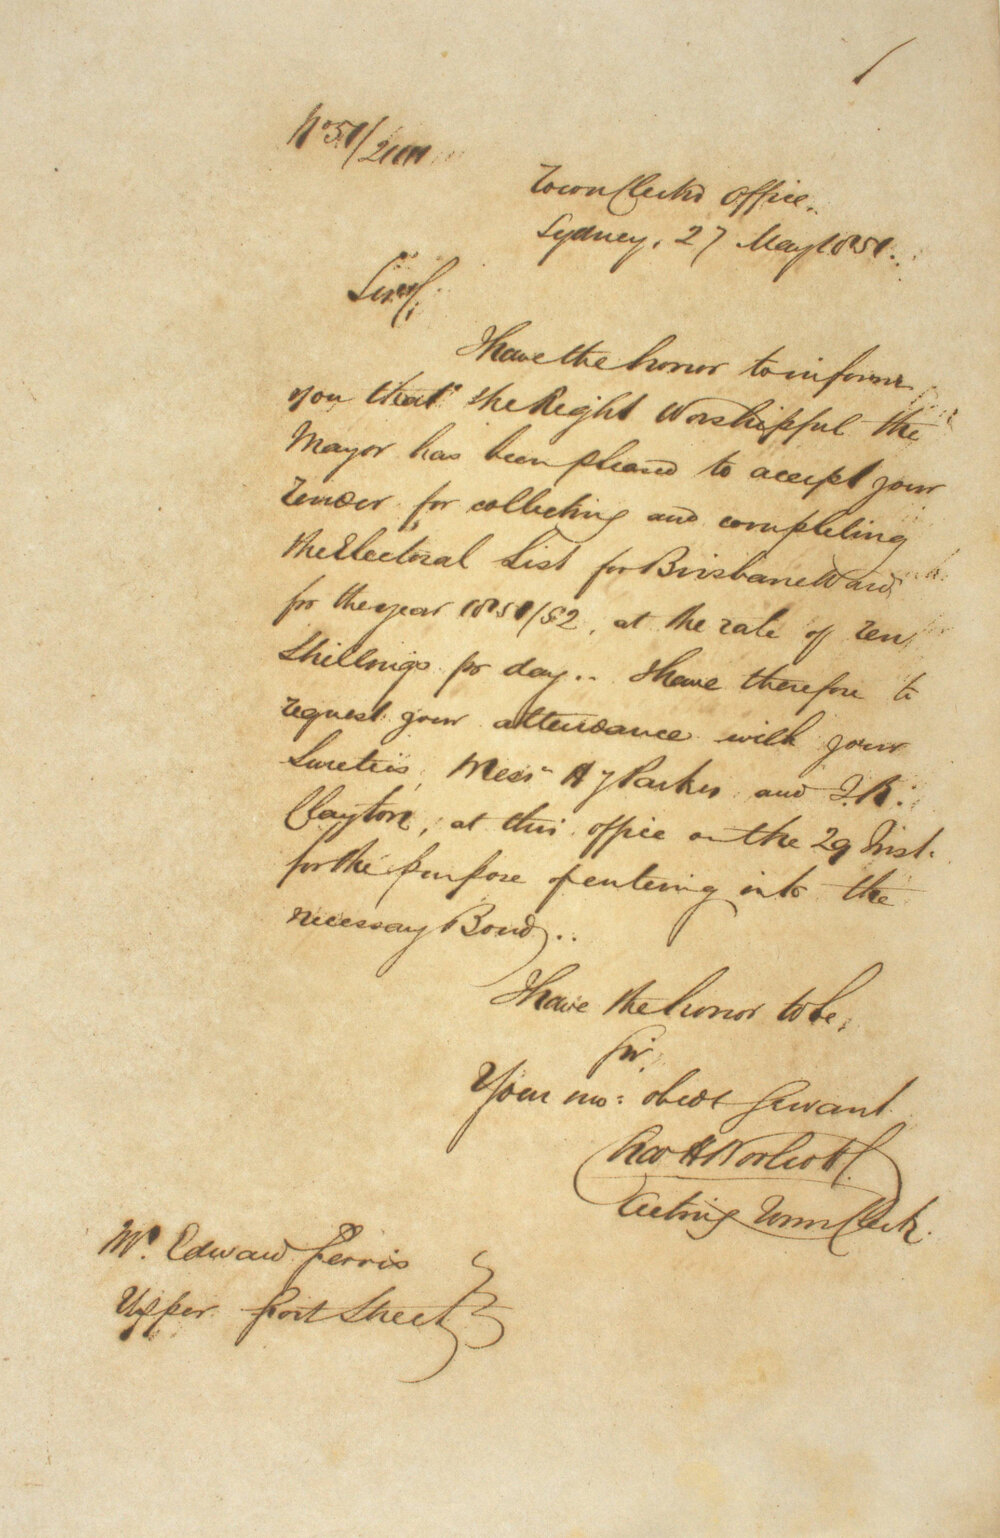 No 51/
Town Clerk's Office.
Sydney, 27 May 1851.
Sir,
I have the honor to inform
you that the Right Worshipful the
Mayor has been pleased to accept your
Tender for collecting and completing
the Electoral List for Brisbane Ward
for the year 1851/52, at the rate of Ten
Shillings pr day.. I have therefore to
request your attendance with your
Sureties, Messrs Hy Parkes and J. R.
Clayton, at this office on the 29 Inst.
for the purpose of entering into the
necessary Bond..
I have the honor to be,
Sir,
Your mo: obedt Servant
Geo H Wor
Acting Town Clerk.
Mr. Edward Ferris
Upper Fort Street